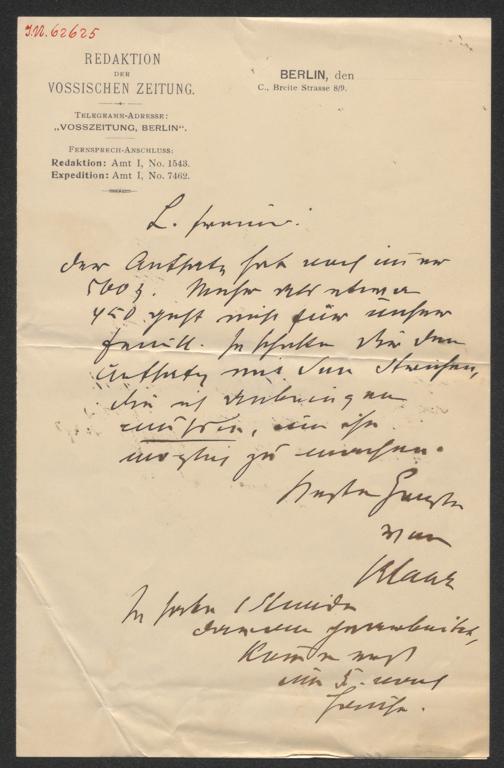 I.N. 62625
REDAKTION
DER
VOSSISCHEN ZEITUNG.
TELEGRAMM-ADRESSE:
„VOSSZEITUNG, BERLIN“.
FERNSPRECH-ANSCHLUSS:
Redaktion: Amt I, No. 1543.
Expedition: Amt I, No. 7462.
BERLIN, den
C., Breite Strasse 8/9.
L. Freund!
der Aufsatz hat noch immer
500 Z. Mehr als etwa
450 geht nicht für unser
Feuill. Ich schicke Dir den
Aufsatz mit den Strichen,
die ich anbringen
musste, um ihn
möglich zu machen.
Beste Grüsse
von
Klaar
Ich habe
daran gearbeitet,